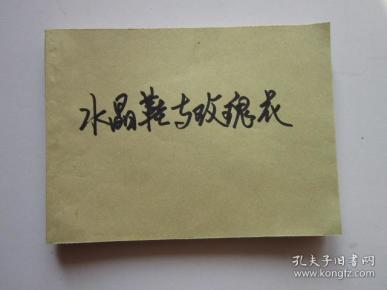 水晶鞋与玫瑰花
孔夫子旧书网
www.kongfz.com